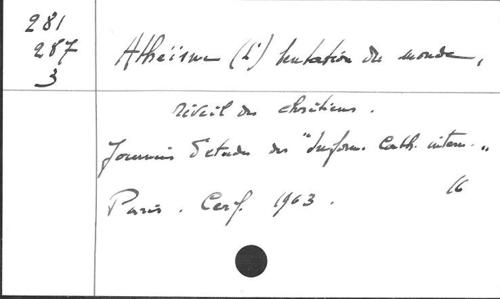 281
287
3
Athéisme (L') tentation du monde,
réveil des chrétiens.
Journées d'études des "Inform. Cath. intern."
Paris. Cerf. 1963. 16